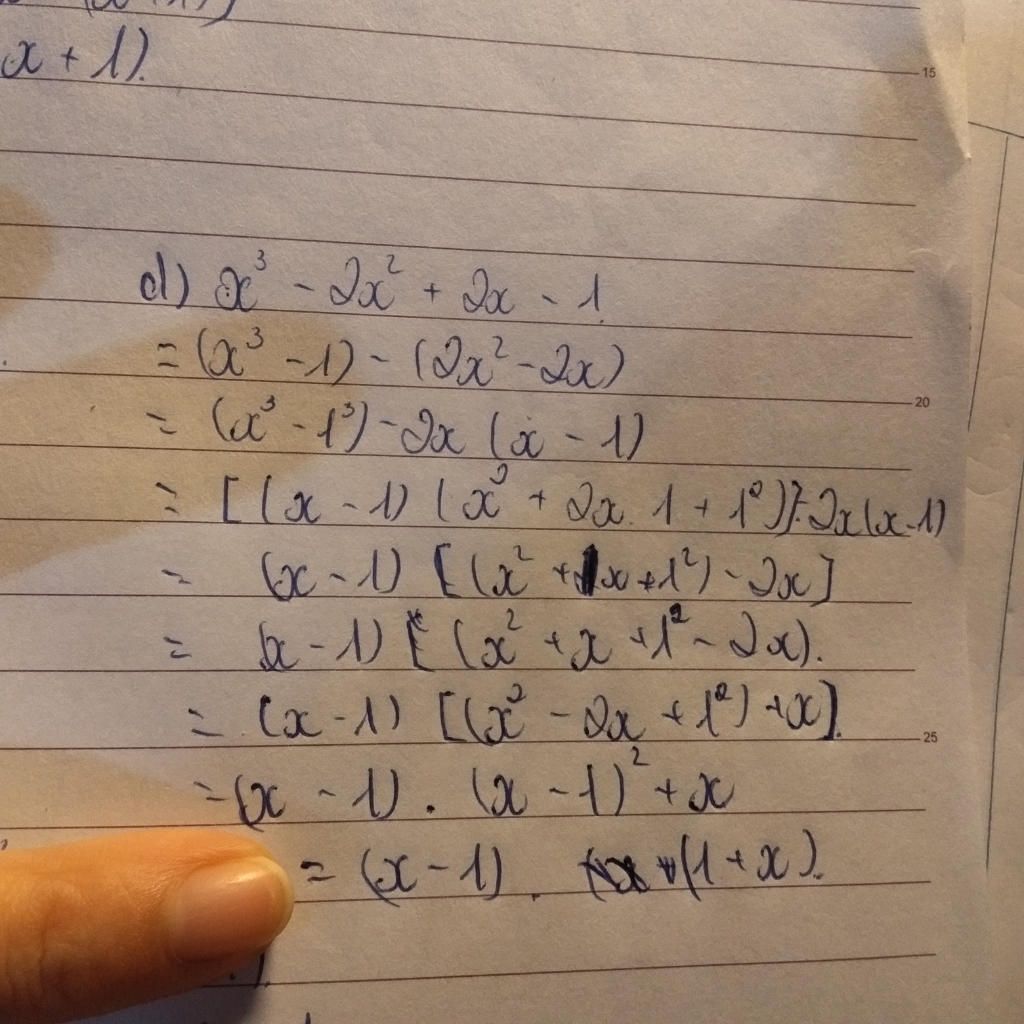 x + 1).
15
d) x³ - 2x² + 2x - 1
= (x³ - 1) - (2x² - 2x)
20
= (x³ - 1³) - 2x (x - 1)
= [(x - 1) (x² + 2x . 1 + 1²)] - 2x(x-1)
= (x - 1) [(x² + 1x + 1²) - 2x]
= (x - 1) [(x² + x + 1² - 2x).
= (x - 1) [(x² - 2x + 1²) + x].
25
= (x - 1) . (x - 1)² + x
= (x - 1) . (1 + x).